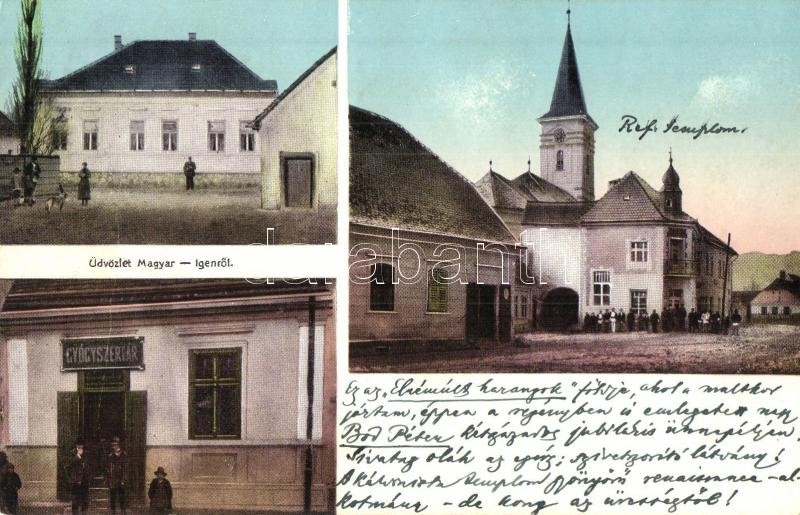 Ref. templom.
Üdvözlet Magyar — Igenről.
darabanth
GYÓGYSZERTÁR
Ez az „Elnémúlt harangok" földje, ahol a multkor
jártam, éppen a regényben is emlegetett nagy
Bod Péter kétszázados jubiláris ünnepélyén.
Sivatag oláh az egész; szivetszorító látvány!
A kálvinista templom gyönyörű renaissance-al-
kotmány - de kong az ürességtől!